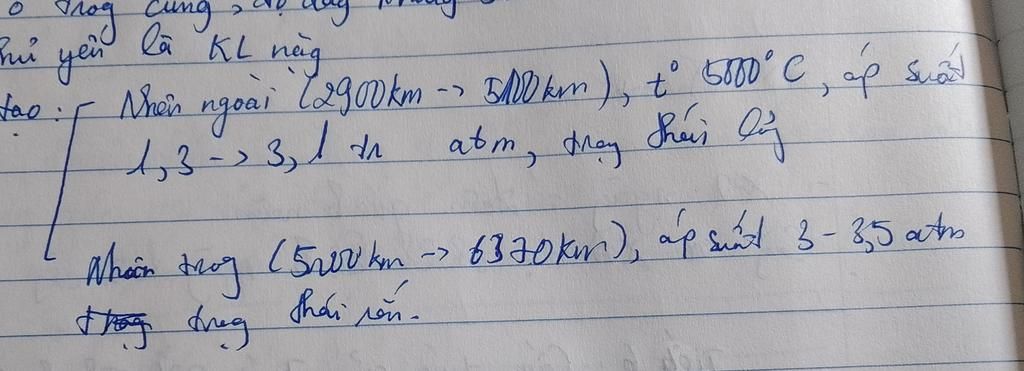 o trog cùng, độ dày
hủ yếu là KL nặg
tạo: Nhân ngoài (2900km -> 5100km), t° 5000°C, áp suất
1,3 -> 3,1 tr atm, trag thái lỏg
Nhân trog (5100km -> 6370km), áp suất 3 - 3,5 atm
trag thái rắn.